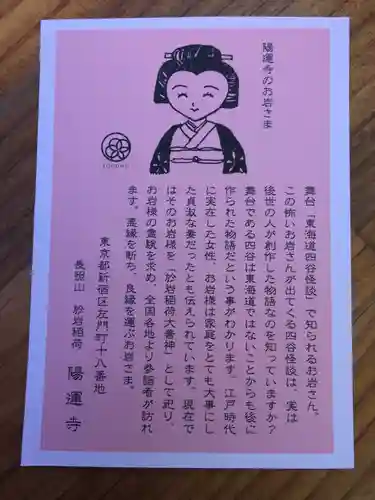 陽運寺のお岩さま
YOUUNJI
舞台「東海道四谷怪談」で知られるお岩さん。
この怖いお岩さんが出てくる四谷怪談は、実は
後世の人が創作した物語なのを知っていますか?
舞台である四谷は東海道ではないことからも後に
作られた物語だという事がわかります。江戸時代
に実在した女性、お岩様は家庭をとても大事にし
た貞淑な妻だったとも伝えられています。現在で
はそのお岩様を「於岩稲荷大善神」として祀り、
お岩様の霊験を求め、全国各地より参詣者が訪れ
ます。悪縁を断ち、良縁を運ぶお岩さま。
東京都新宿区左門町十八番地
長照山 於岩稲荷 陽運寺